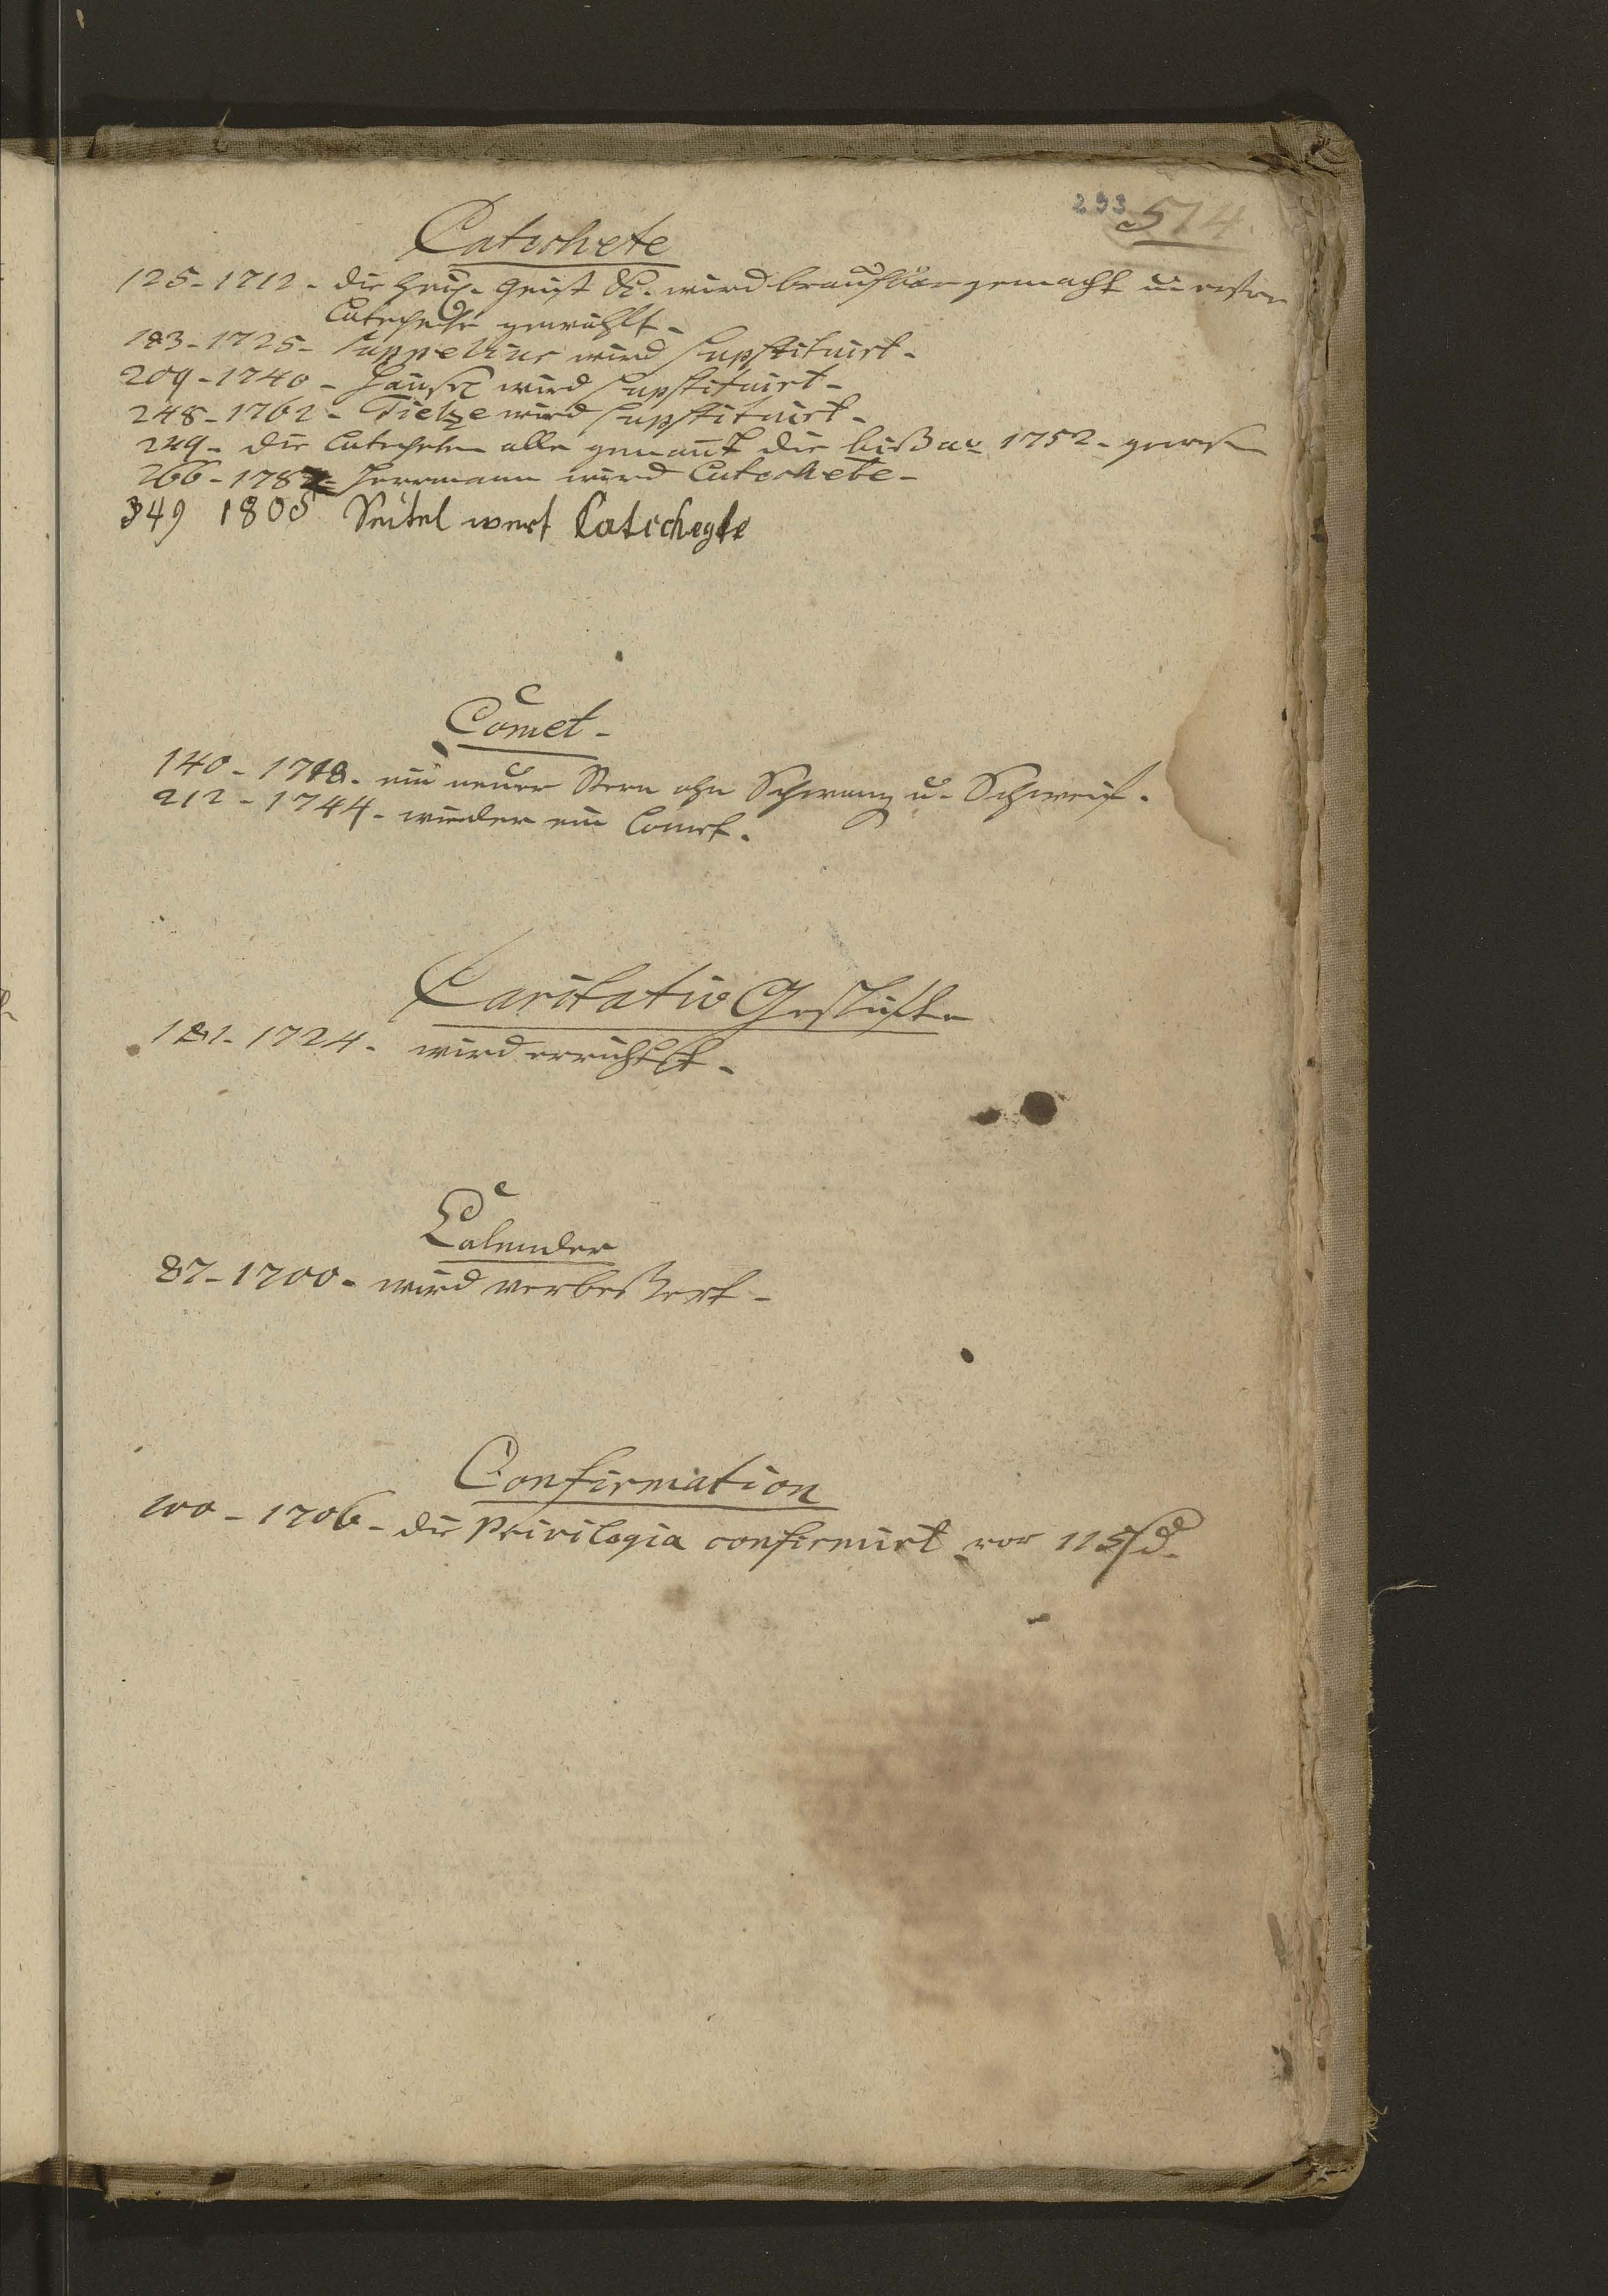 293 514.
Catechete
125 - 1712 - die heil. Geist K. wird brauchbar gemacht u. erster
Catechete gewählt -
183 - 1725 - wird supstituirt -
209 - 1740 - wird supstituirt -
248 - 1762 - Tietze wird supstituirt -
249 - die Catecheten alle genant die bißar 1752 - gewesen
266 - 1787 - Herrmann wird Catechete -
349 1805 Seitel wert Catichegte
C
Comet -
140 - 1718 - ein neuer Stern ohn Schwanz u. Schweif.
212 - 1744 - wieder ein Comet.
Caritativ Gestifte
181 - 1724 - wird errichtet -
Calender
87 - 1700 - wird verbeßert -
Confirmation
100 - 1706 - die Privilegia confirmirt vor